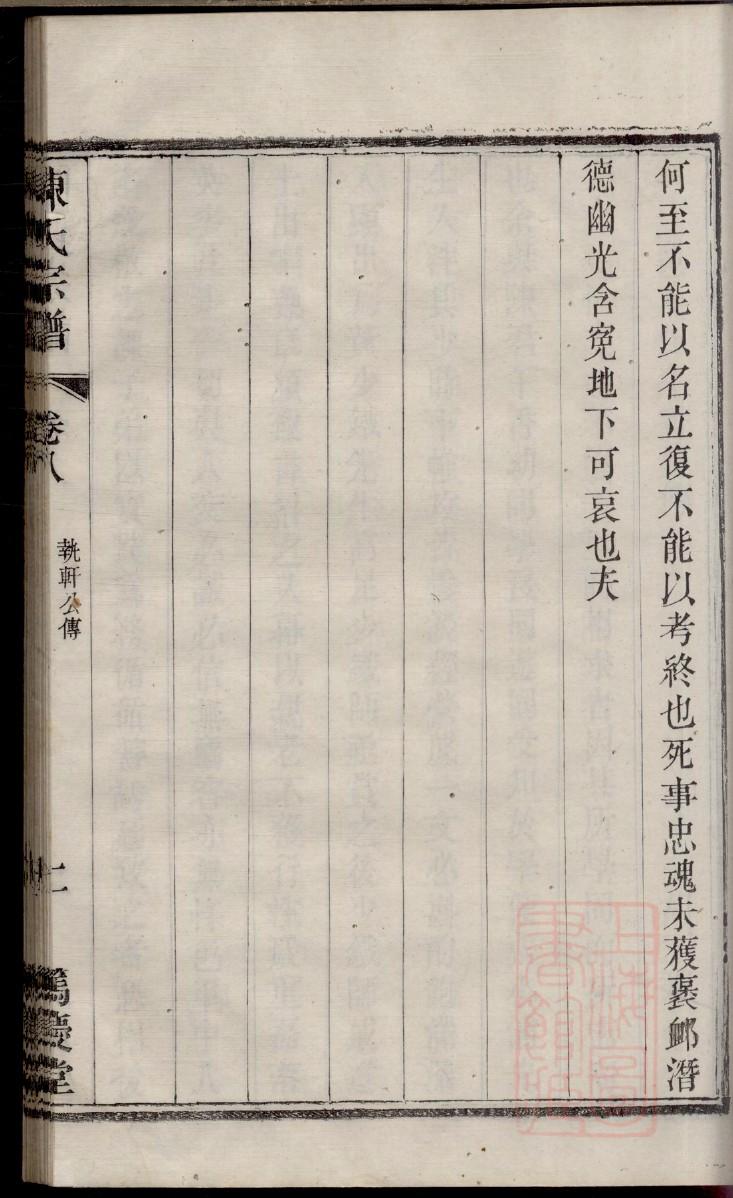 何至不能以名立復不能以考終也死事忠魂未獲褒卹潛
德幽光含寃地下可哀也夫
陳氏宗譜
卷八
執軒公傳
二
篤慶堂
上海圖書館藏